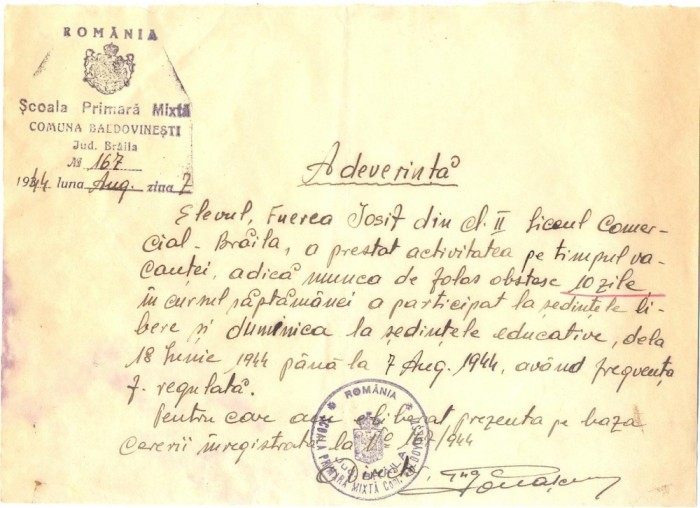 ROMÂNIA
Școala Primară Mixtă
COMUNA BALDOVINEȘTI
Jud. Brăila
№ 167
1944 luna Aug. ziua 7
Adeverință
Elevul, Fuerea Iosif din cl. II Liceul Comer-
cial - Brăila, a prestat activitatea pe timpul va-
canței, adică munca de folos obștesc 10 zile,
în cursul săptămânei a participat la ședințele li-
bere și duminica la ședințele educative, dela
18 Iunie 1944 până la 7 Aug. 1944, având frequența
f. regulată.
Pentru care am eliberat prezenta pe baza
cererii înregistrată la No 167/944
Director,
ROMÂNIA
ȘCOALA PRIMARĂ MIXTĂ Com. BALDOVINEȘTI
JUD. BRĂILA